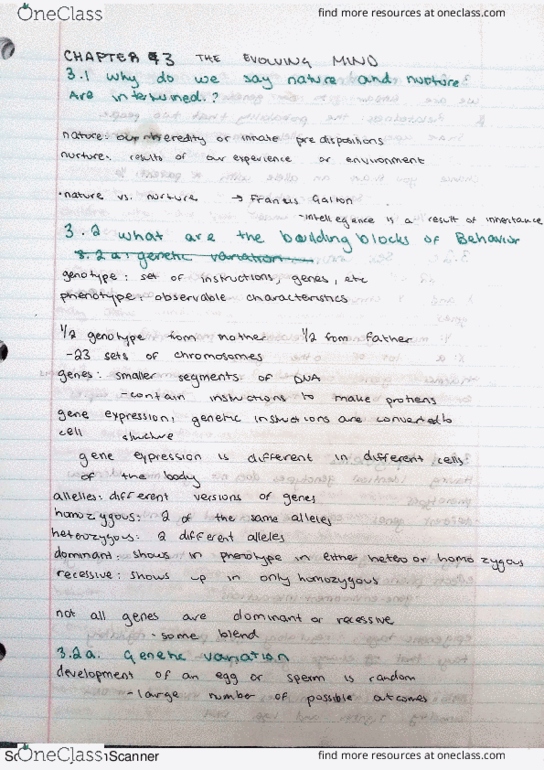 OneClass
find more resources at oneclass.com
CHAPTER 3 THE EVOLVING MIND
3.1 Why do we say nature and nurture
Are intertwined?
nature: our heredity or innate predispositions
nurture: results of our experience or environment
• nature vs. nurture → Francis Galton
- intelligence is a result of inheritance
3.2 what are the building blocks of Behavior
3.2a: genetic variation
genotype: set of instructions, genes, etc
phenotype: observable characteristics
1/2 genotype from mother 1/2 from father
-23 sets of chromosomes
genes: smaller segments of DNA
-contain instructions to make proteins
gene expression: genetic instructions are converted to
cell structure
gene expression is different in different cells
of the body
allelles: different versions of genes
homozygous: 2 of the same alleles
heterozygous: 2 different alleles
dominant: shows in phenotype in either hetero or homozygous
recessive: shows up in only homozygous
not all genes are dominant or recessive
- some blend
3.2a. Genetic variation
development of an egg or sperm is random
-large number of possible outcomes
OneClass Scanner
find more resources at oneclass.com